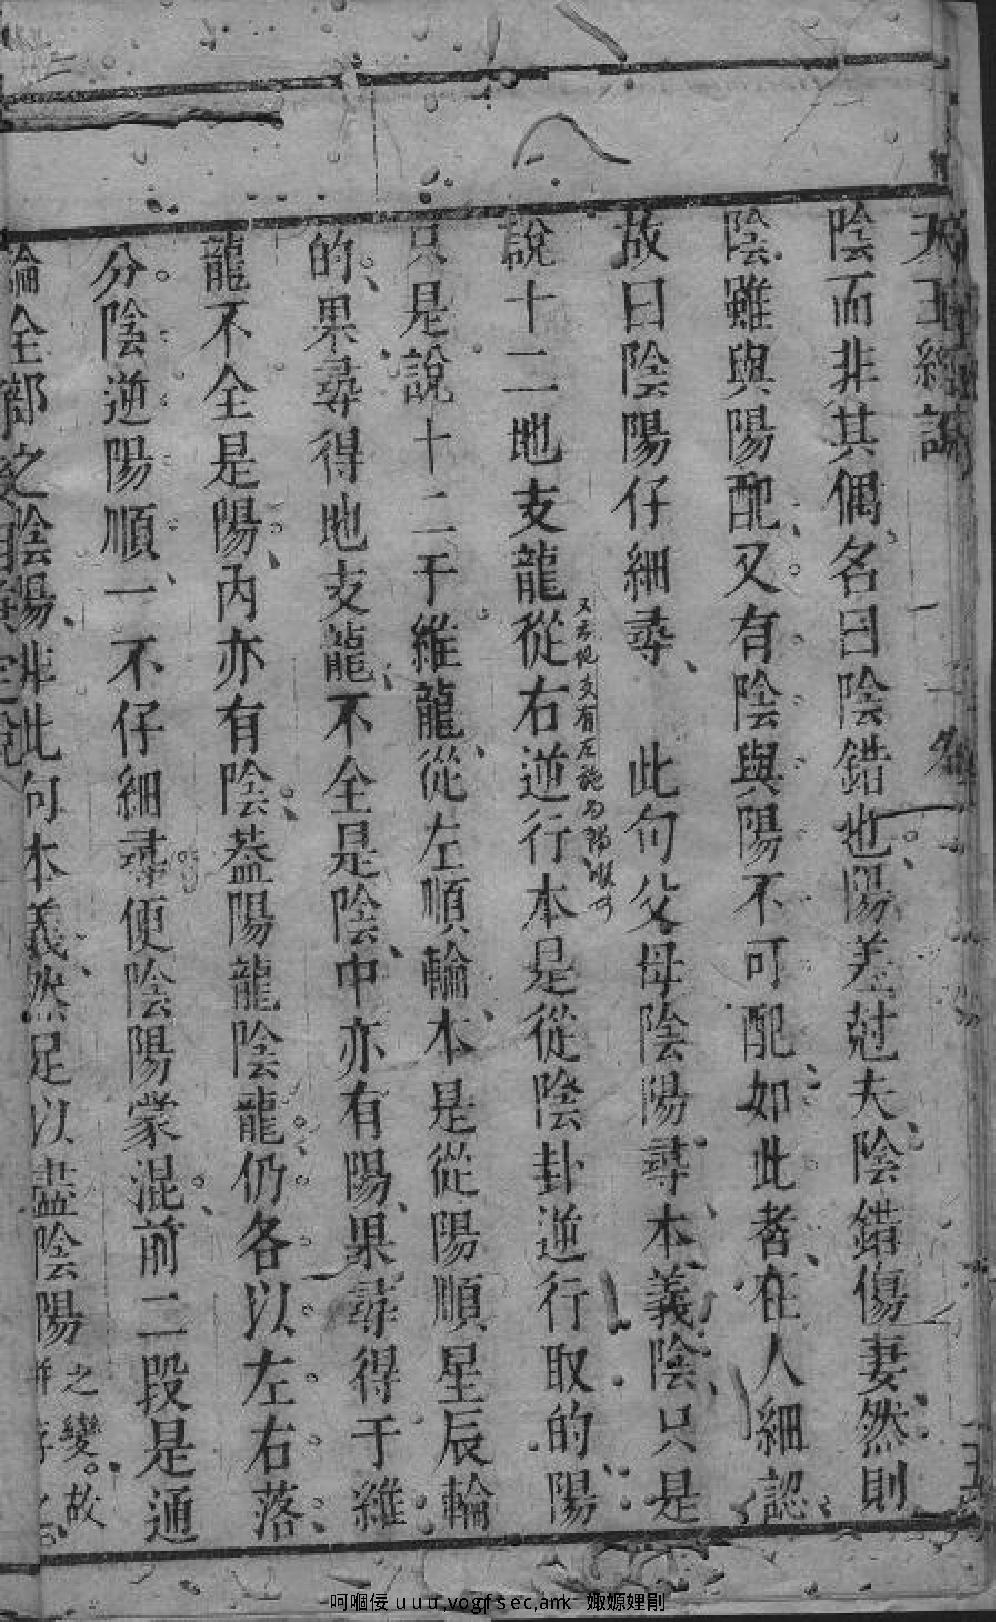 天玉經說
陰而非其偶名曰陰錯也陽差尅夫陰錯傷妻然則
陰雖與陽配又有陰與陽不可配如此者在人細認
故曰陰陽仔細尋 此句父母陰陽尋本義陰只是
說十二地支龍從右逆行本是從陰卦逆行取的陽
只是說十二干維龍從左順輪本是從陽順星辰輪
的果尋得地支龍不全是陰中亦有陽果尋得干維
龍不全是陽內亦有陰葢陽龍陰龍仍各以左右落
分陰逆陽順一不仔細尋便陰陽蒙混前二段是通
論全部之陰陽非此句本義然足以盡陰陽
之變故
呵嗰侫 u u u,vogjf s e c,amk 娵嫄娌剛